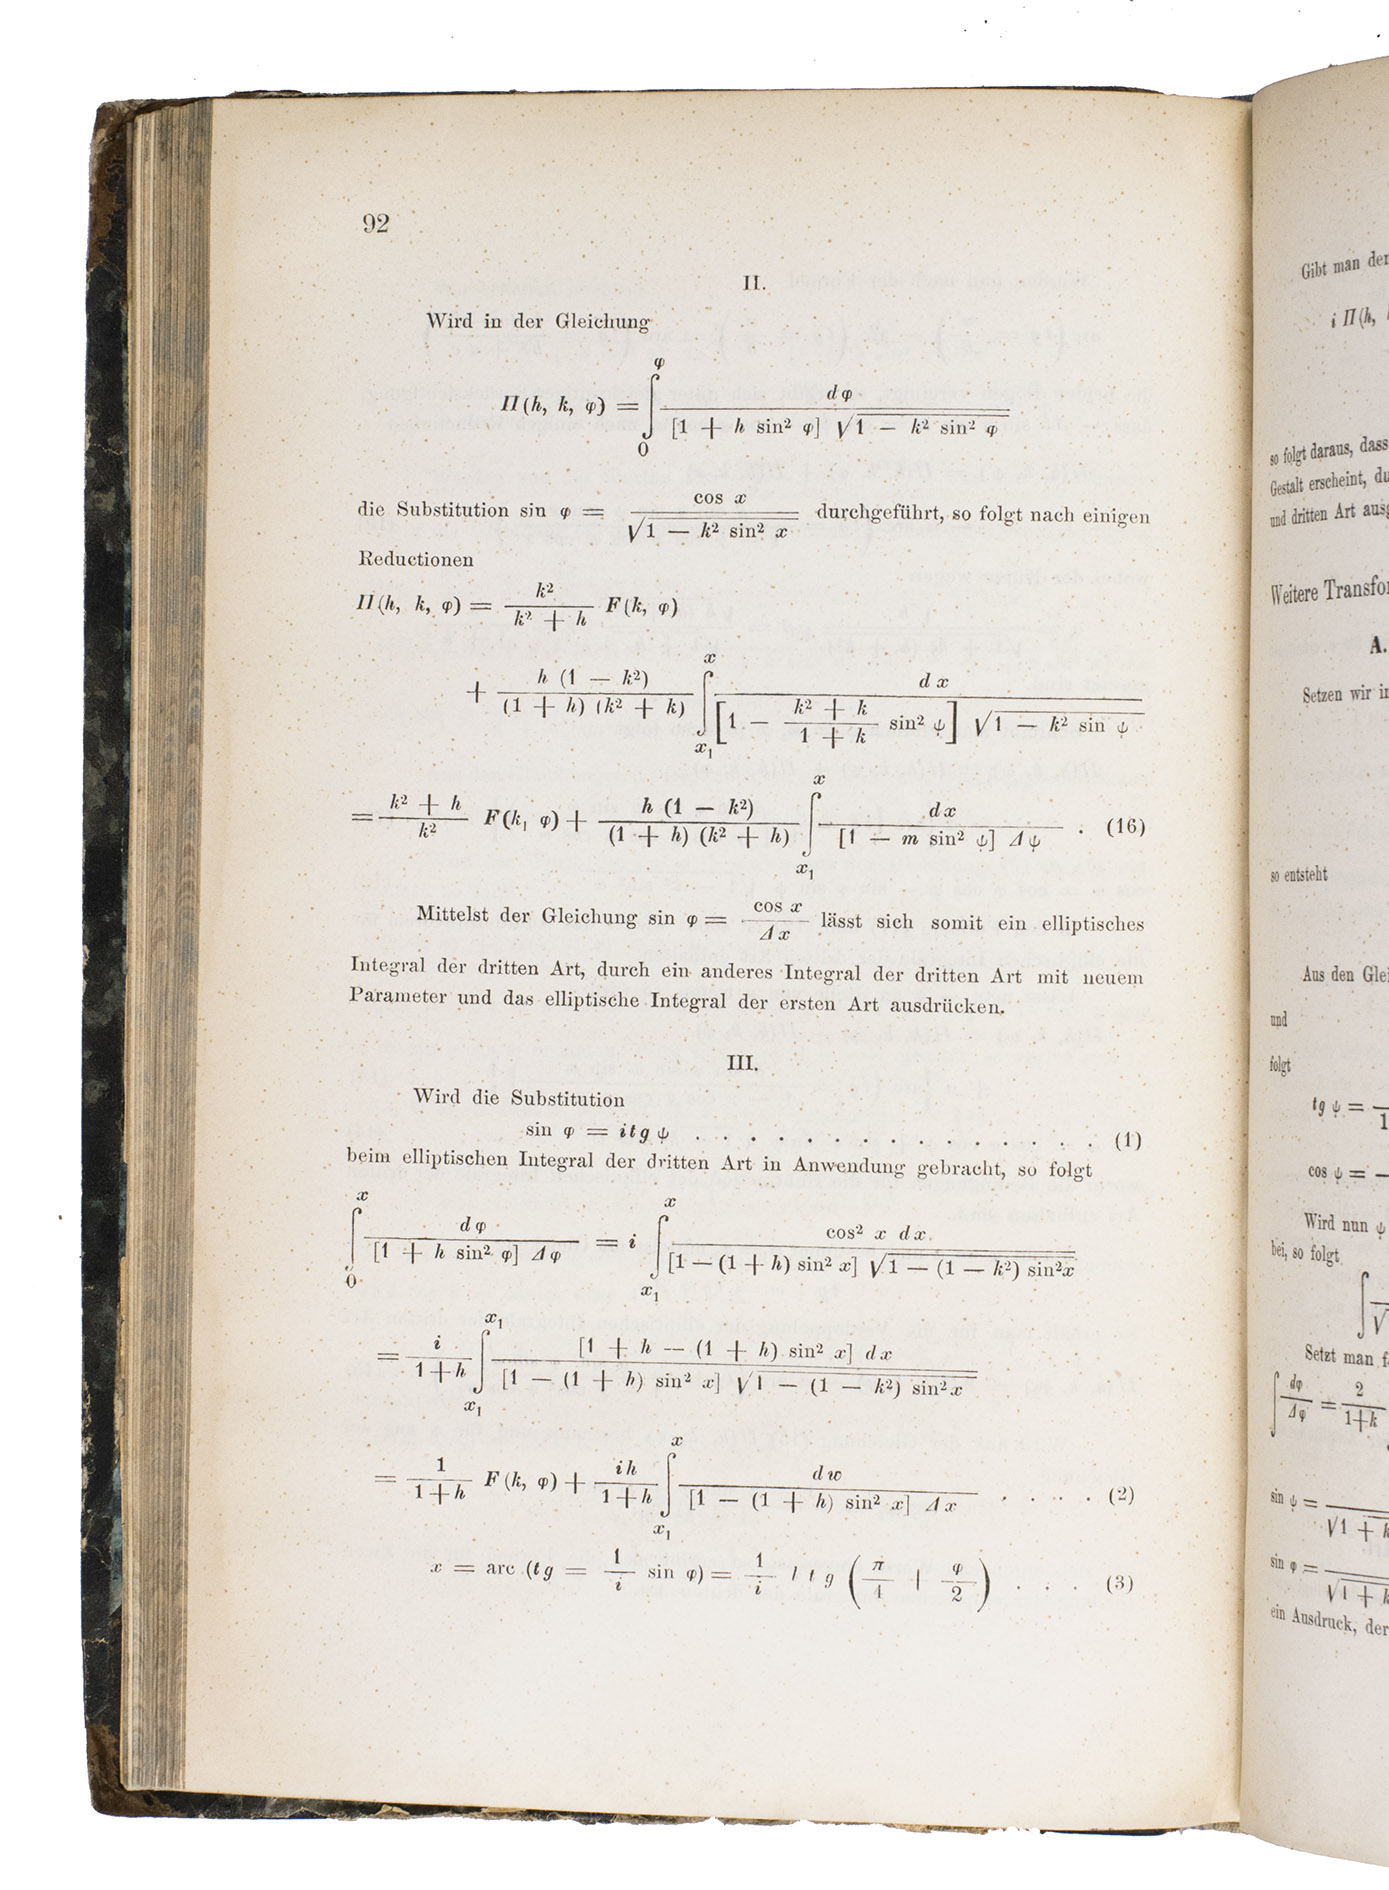 92
II.
Wird in der Gleichung
Π(h, k, φ) = ∫₀^φ dφ / ([1 + h sin² φ] √(1 − k² sin² φ))
die Substitution sin φ = cos x / √(1 − k² sin² x) durchgeführt, so folgt nach einigen
Reductionen
Π(h, k, φ) = k² / (k² + h) F(k, φ)
+ h (1 − k²) / ((1 + h) (k² + k)) ∫_{x₁}^{x} dx / ([1 − (k² + k)/(1 + k) sin² ψ] √(1 − k² sin ψ))
= (k² + h) / k² F(k, φ) + h (1 − k²) / ((1 + h) (k² + h)) ∫_{x₁}^{x} dx / ([1 − m sin² ψ] Δψ) . (16)
Mittelst der Gleichung sin φ = cos x / Δx lässt sich somit ein elliptisches
Integral der dritten Art, durch ein anderes Integral der dritten Art mit neuem
Parameter und das elliptische Integral der ersten Art ausdrücken.
III.
Wird die Substitution
sin φ = itg ψ . . . . . . . . . . . . . . . (1)
beim elliptischen Integral der dritten Art in Anwendung gebracht, so folgt
∫₀^x dφ / ([1 + h sin² φ] Δφ) = i ∫_{x₁}^{x} cos² x dx / ([1 − (1 + h) sin² x] √(1 − (1 − k²) sin² x))
= i / (1 + h) ∫_{x₁}^{x₁} [1 + h − (1 + h) sin² x] dx / ([1 − (1 + h) sin² x] √(1 − (1 − k²) sin² x))
= 1 / (1 + h) F(k, φ) + ih / (1 + h) ∫_{x₁}^{x} dw / ([1 − (1 + h) sin² x] Δx) . . . . (2)
x = arc (tg = 1/i sin φ) = 1/i l t g (π/4 + φ/2) . . . (3)
Gibt man der
i Π(h,
so folgt daraus, dass
Gestalt erscheint, du
und dritten Art ausg
Weitere Transfor
A.
Setzen wir in
so entsteht
Aus den Glei
und
folgt
tg ψ =
cos ψ = −
Wird nun ψ
bei, so folgt
Setzt man f
∫ dφ / Δφ = 2 / (1+k
sin ψ = / √1 + k
sin φ = / √1 + k
ein Ausdruck, der